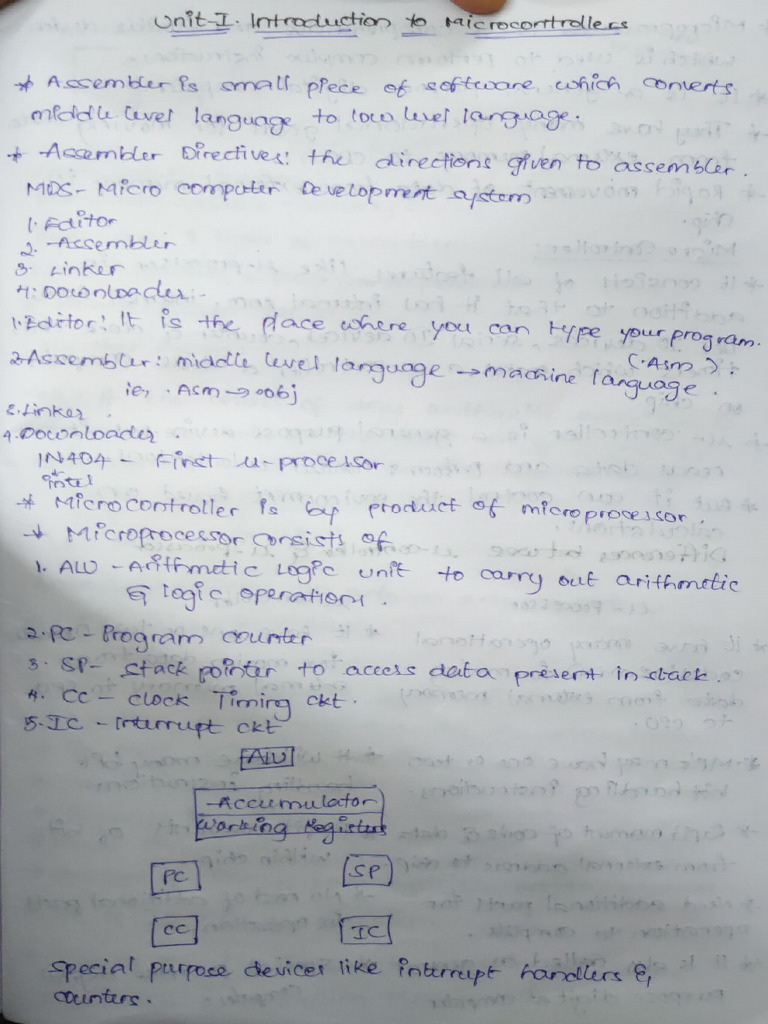 Unit-I. Introduction to Microcontrollers
* Assembler is small piece of software which converts
middle level language to low level language.
* Assembler Directives: the directions given to assembler.
MDS - Micro computer Development system
1. Editor
2. Assembler
3. Linker
4. Downloader.
1. Editor: It is the place where you can type your program.
(.Asm).
2. Assembler: middle level language → machine language.
ie, .Asm → .obj
3. Linker.
4. Downloader.
IN404 - First u-processor
intel
* Microcontroller is by product of microprocessor.
* Microprocessor consists of
1. ALU - Arithmetic Logic unit to carry out arithmetic
& logic operations.
2. PC - Program counter
3. SP - stack pointer to access data present in stack.
4. CC - clock Timing ckt.
5. IC - Interrupt ckt
ALU
Accumulator
Working Registers
PC SP
CC IC
special purpose devices like interrupt handlers &
counters.